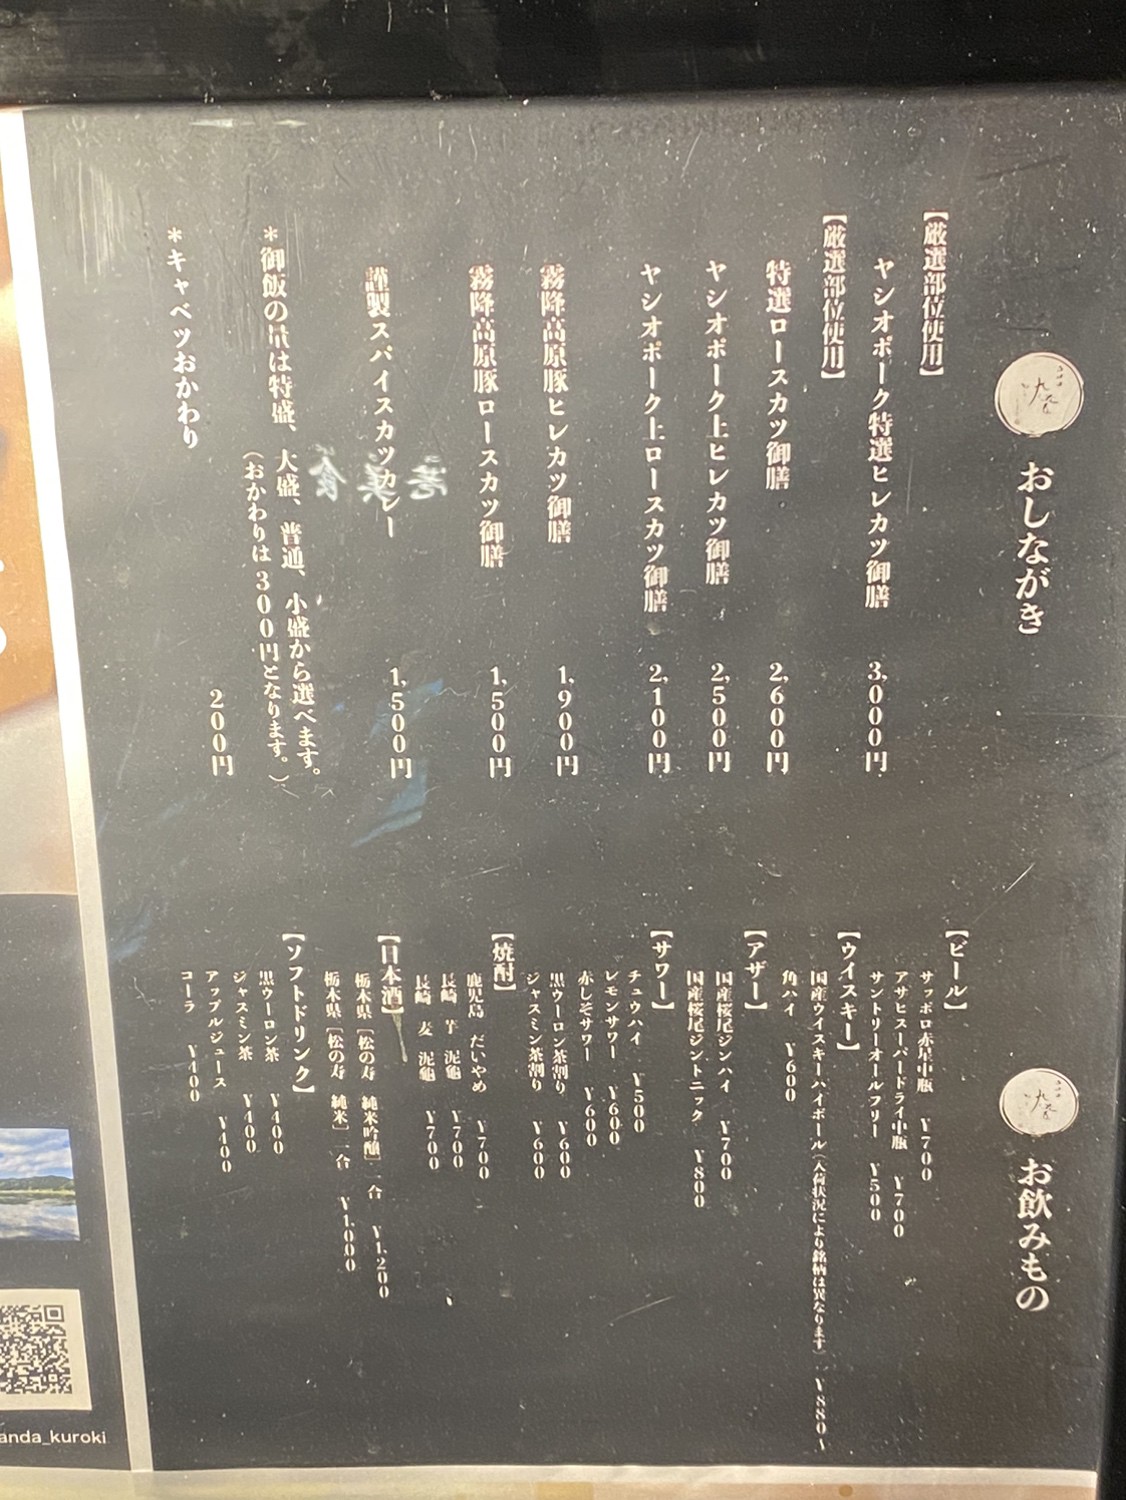 おしながき
【厳選部位使用】
ヤシオポーク特選ヒレカツ御膳 3,000円
【厳選部位使用】
特選ロースカツ御膳 2,600円
ヤシオポーク上ヒレカツ御膳 2,500円
ヤシオポーク上ロースカツ御膳 2,100円
霧降高原豚ヒレカツ御膳 1,900円
霧降高原豚ロースカツ御膳 1,500円
謹製スパイスカツカレー 1,500円
*御飯の量は特盛、大盛、普通、小盛から選べます。
(おかわりは300円となります。)
*キャベツおかわり 200円
お飲みもの
【ビール】
サッポロ赤星中瓶 ¥700
アサヒスーパードライ中瓶 ¥700
サントリーオールフリー ¥500
【ウイスキー】
国産ウイスキーハイボール(入荷状況により銘柄は異なります) ¥880〜
角ハイ ¥600
【アザー】
国産桜尾ジンハイ ¥700
国産桜尾ジントニック ¥800
【サワー】
チュウハイ ¥500
レモンサワー ¥600
赤しそサワー ¥600
黒ウーロン茶割り ¥600
ジャスミン茶割り ¥600
【焼酎】
鹿児島 だいやめ ¥700
長崎 芋 泥亀 ¥700
長崎 麦 泥亀 ¥700
【日本酒】
栃木県［松の寿 純米吟醸］一合 ¥1,200
栃木県［松の寿 純米］一合 ¥1,000
【ソフトドリンク】
黒ウーロン茶 ¥400
ジャスミン茶 ¥400
アップルジュース ¥400
コーラ ¥400
anda_kuroki